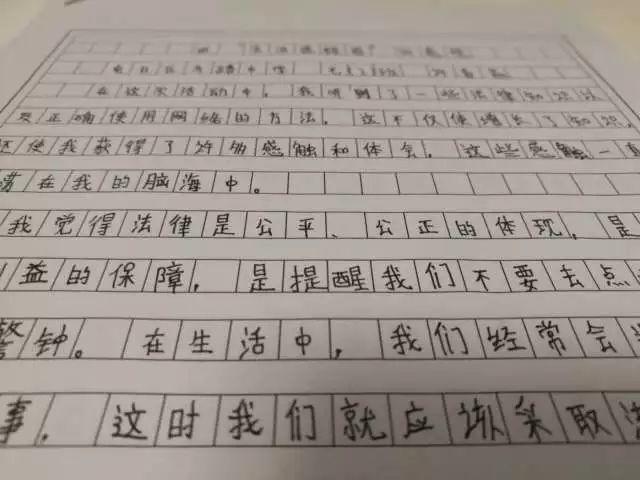 在这次活动中，我听到了一些法律知识以
及正确使用网络的方法。这不仅使增长了知识，
还使我获得了许多感触和体会。这些感触一直
荡在我的脑海中。
我觉得法律是公平、公正的体现，是
益的保障，是提醒我们不要去点
警钟。在生活中，我们经常会
事，这时我们就应该采取法